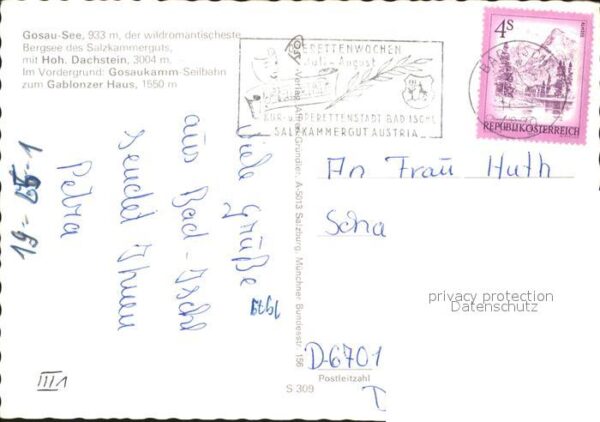 Gosau-See, 933 m, der wildromantischeste
Bergsee des Salzkammerguts,
mit Hoh. Dachstein, 3004 m.
Im Vordergrund: Gosaukamm-Seilbahn
zum Gablonzer Haus, 1550 m
OPERETTENWOCHEN
Juli - August
KUR- U. OPERETTENSTADT BAD ISCHL
SALZKAMMERGUT AUSTRIA
4S
REPUBLIK ÖSTERREICH
Viele Grüße
aus Bad-Ischl
sendet Ihnen
Petra
1979
III/1
Verlag Alfred Gründler, A-5013 Salzburg, Münchner Bundesstr. 156
S 309
An Frau Huth
Scha
privacy protection
Datenschutz
D-6701
Postleitzahl
D